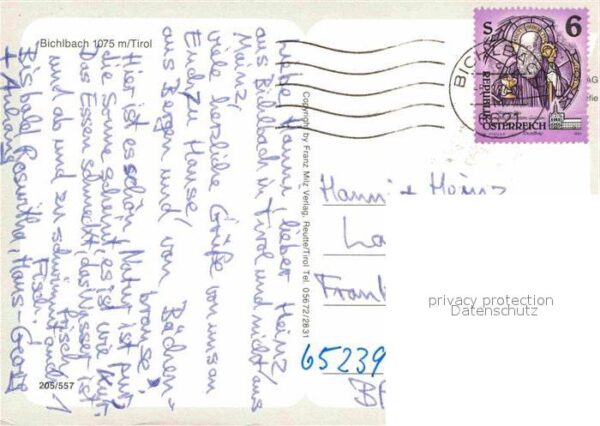 Bichlbach 1075 m/Tirol
Liebe Hanni, lieber Heinz
aus Bichlbach in Tirol und nicht aus
Mainz,
viele herzliche Grüße von uns an
Euch zu Hause,
aus Bergen und von Bächen
brause,
Hier ist es schön, Natur ist pur
die Sonne scheint, es ist wie Kur.
Das Essen schmeckt, das Wasser ist
frisch
und ab und zu schwimmt auch 1
Fisch!
Bis bald Roswitha, Hans-Georg
+ Anhang
205/557
Copyright by Franz Milz Verlag, Reutte/Tirol Tel. 05672/2831
S 6
REPUBLIK
ÖSTERREICH
BICHLB
6621
Hanni + Heinz
La
Frank
65239
privacy protection
Datenschutz
AG